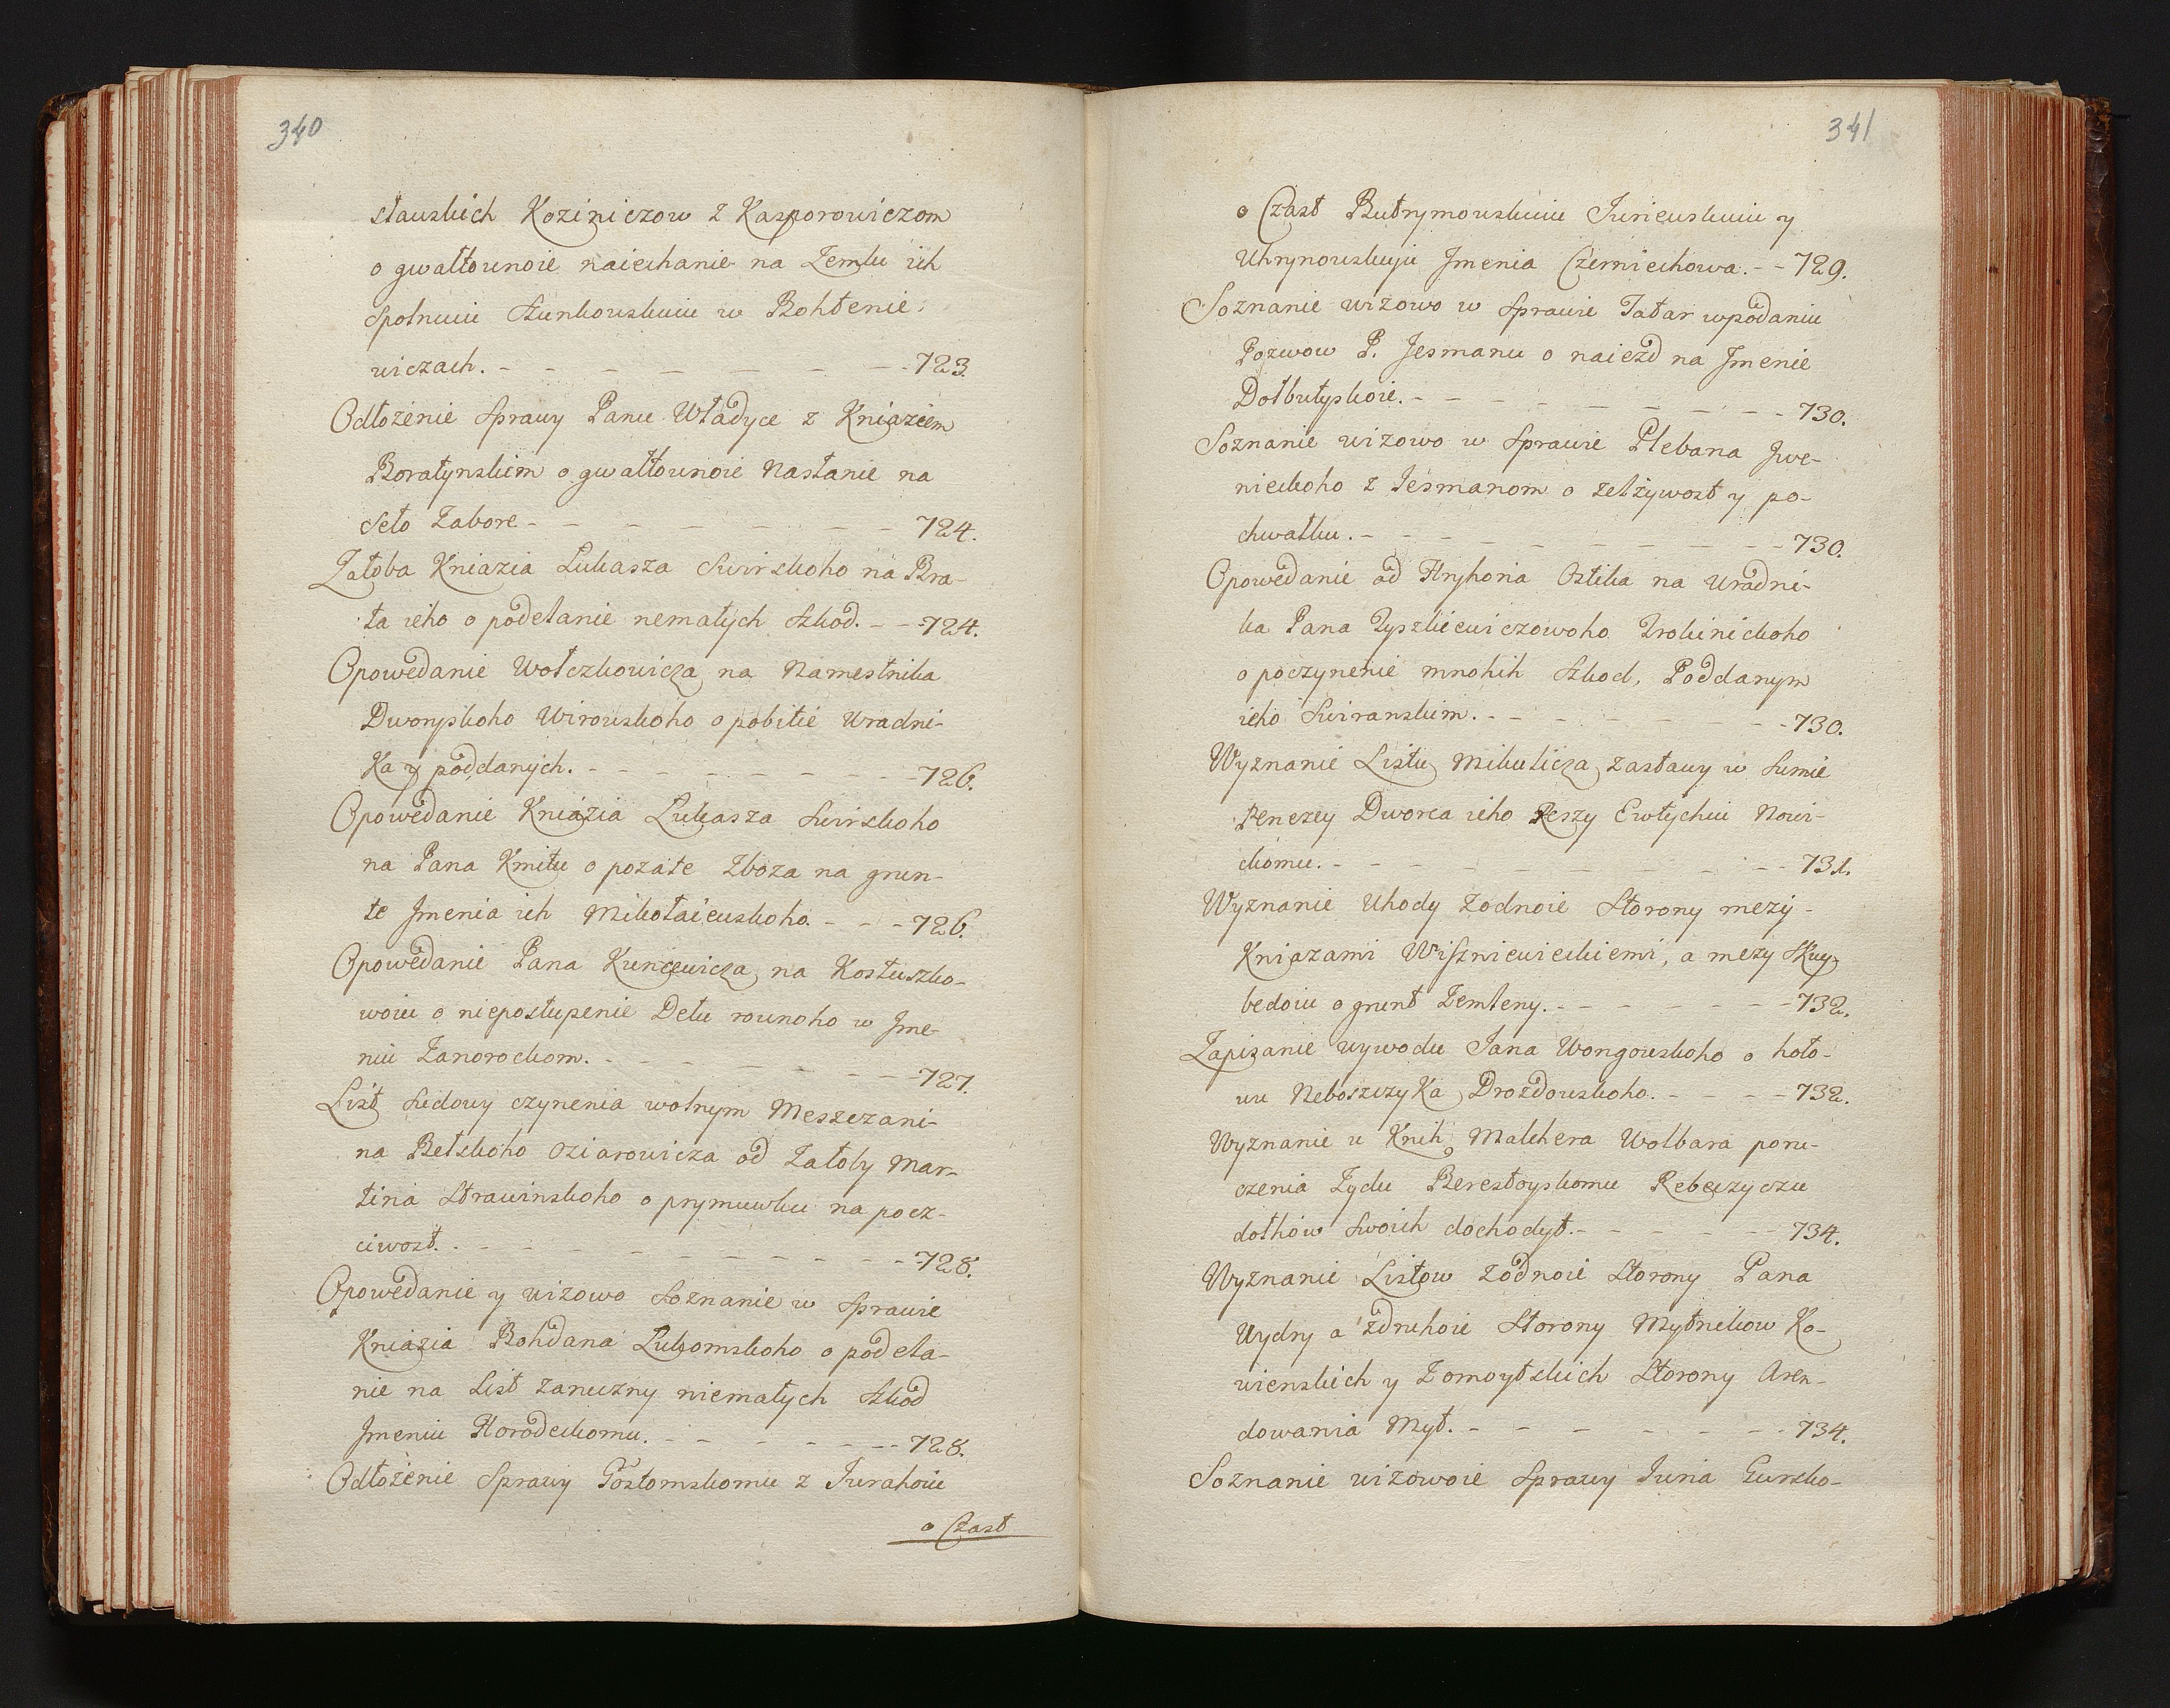 340
sławskich Koziniczow z Kasporowiczom
o gwałtounoie naiechanie na Zemlu ich
Spolnuiu Szunkouskuiu w Bohdenie,
wiczach. - - - - - - - 723.
Odłożenie Sprawy Panu Władyce z Kniaziem
Boratynskim o gwałtounoie Nasłanie na
Seło Zabore - - - - - - - 724.
Załoba Kniazia Lukasza Swirskoho na Bra-
ta ieho o podełanie nemałych Szkod. - - 724.
Opowedanie Wołczkowicza na Namestnika
Dworyskoho Wirouskoho o pobitie Uradni-
Ka y poddanych. - - - - - - - 726.
Opowedanie Kniazia Lukasza Swirskoho
na Pana Kmitu o pożate Zboza na grun-
te Jmenia ich Mikołaieuskoho. - - - 726.
Opowedanie Pana Kuncewicza na Kostuszko-
woiu o niepostupenie Dełu rounoho w Jme-
niu Zanorockom. - - - - - - - 727.
List Sudowy czynenia wolnym Meszczani-
na Belskoho Oziarowicza od Załoby Mar-
tina Strawinskoho o prymuwku na pocz-
ciwost. - - - - - - - - 728.
Opowedanie y wizowo Soznanie w Sprawie
Kniazia Bohdana Lukomskoho o podeła-
nie na List zaruczny niemałych Szkod
Jmeniu Horodeckomu. - - - - - - 728.
Odłożenie Sprawy Gostomskomu z Jurahoiu
o Czast
341
o Czast Butrymouskuiu Jurieuskuiu y
Uhrynouskuju Jmenia Czerniechowa. - - 729.
Soznanie wizowo w Sprawie Tatar wpodaniu
Pozwow P. Jesmanu o naiezd na Jmenie
Dołbutyskoie. - - - - - - - - 730.
Soznanie wizowo w Sprawie Plebana Jwe-
nieckoho z Jesmanom o zelżywost y po-
chwałku. - - - - - - - - 730.
Opowedanie od Hryhoria Ostika na Uradni-
ka Pana Tyszkiewiczowoho
o poczynenie mnohih Szkod, Poddanym
ieho Swiranskim. - - - - - - - 730.
Wyznanie Listu Mikulicza zastawy w Sumie
Penezey Dworca ieho Reszy Ewtychiu Nowi-
ckomu. - - - - - - - - 731.
Wyznanie Uhody Zodnoie Storony mezy-
Kniazami Wiszniewieckiemi, a mezy Skuy-
bedoiu o grunt Zemleny. - - - - - - 732.
Zapisanie wywodu Jana Wongouskoho o hoło-
wu Neboszczyka Drozdouskoho. - - - - 732.
Wyznanie u Knih Malchera Wolbara poru-
czenia Zydu Berestoyskomu Rebeczyczu
dołhow swoich dochodyt. - - - - - 734.
Wyznanie Listow Zodnoie Storony Pana
Wydry a zdruhoie Storony Mytnikow Ko-
wienskich y Zomoytskich Storony Aren-
dowania Myt. - - - - - - - 734.
Soznanie wizowoie Sprawy Juria Gursko-